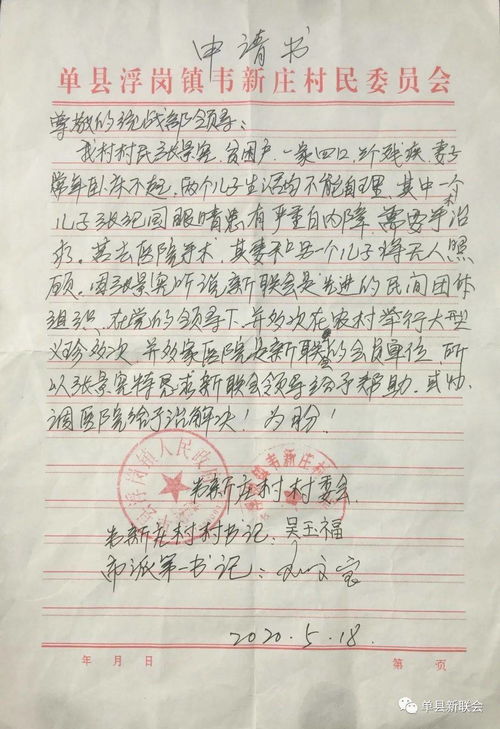 申请书
单县浮岗镇韦新庄村民委员会
尊敬的统战部领导：
我村村民张景宪，贫困户，一家四口，三个残疾，妻子
常年卧床不起，两个儿子生活均不能自理，其中一个
儿子张纪同眼睛患有严重白内障，需要手术治
疗。若去医院手术，其妻和另一个儿子将无人照
顾。因张景宪听说新联会是先进的民间团体
组织，在党的领导下，并多次在农村举行大型
义诊多次，并多家医院是新联会的会员单位，所
以张景宪特恳求新联会领导给予帮助，或协
调医院给予治解决！为盼！
韦新庄村村委会
韦新庄村村书记：吴玉福
市派第一书记：
2020.5.18.
年 月 日
第 页
单县新联会